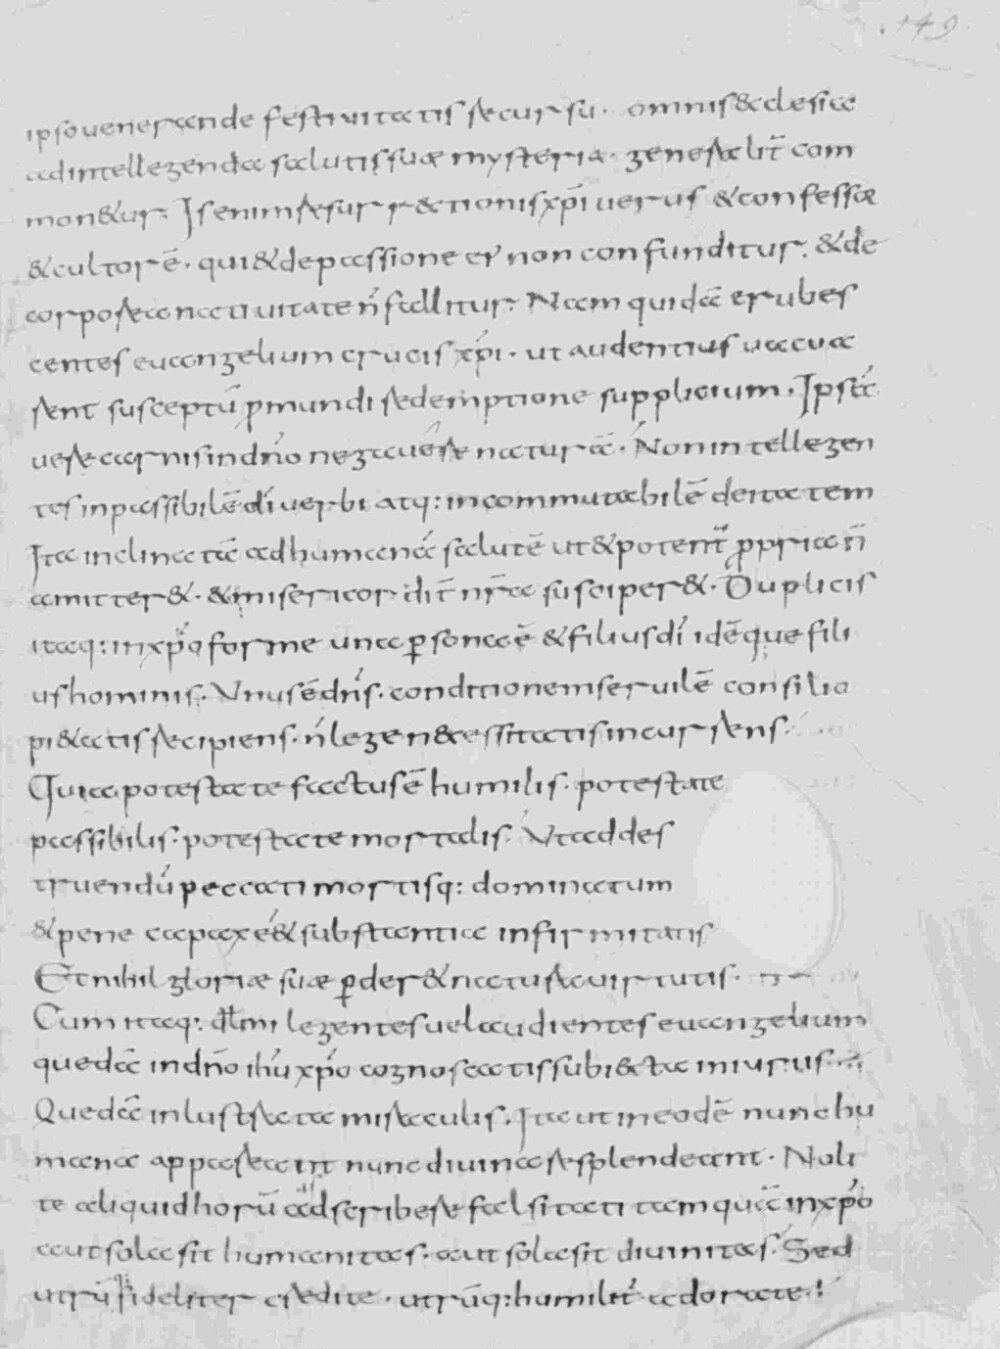 149
ipso uenerande festiuitatis recursu. omnis &clesia
ad intellegenda salutis suae mysteria. generalit̄ com
mon&ur. Is enim resurr&ctionis xp̄i uerus & confessor
& cultor ē. qui & de passione ei' non confunditur. & de
corporea natiuitate n̄ fallitur. Nam quidā erubes
centes euangelium crucis xp̄i. ut audentius uacua
rent susceptū p mundi redemptione supplicium. Ipsā
uere carnis in dn̄o negauere naturā. Non intellegen
tes inpassibilē dī uerbi atq: incommutabilē deitatem
Ita inclinatā ad humanā salutē ut & potent̄ propria n̄
amitter&. & misericordit̄ nr̄a susciper&. Duplicis
itaq: in xp̄o forme una psona ē & filius dī idēque fili
us hominis. Vnus ē dn̄s. conditionem seruilē consilio
pi&atis recipiens. n̄ lege nec&essitatis incurrens.
Quia potestate factus ē humilis. potestate
passibilis. potestate mortalis. Vt ad des
truendū peccati mortisq: dominatum
& pene capax ē& substantia infirmitatis
Et nihil gloriae suae pder& natura uirtutis.
Cum itaq: dl̄mi legentes uel audientes euangelium
quedā in dn̄o ihū xp̄o cognoscatis subi&ta iniuriis.
Quedā inlustrata miraculis. Ita ut in eodē nunc hu
mana appareant nunc diuina resplendeant. Noli
te aliquid horū adscribere falsitati tamquā in xp̄o
aut sola sit humanitas. aut sola sit diuinitas. Sed
utrū fideliter credite. utrūq: humilit̄ adorate.